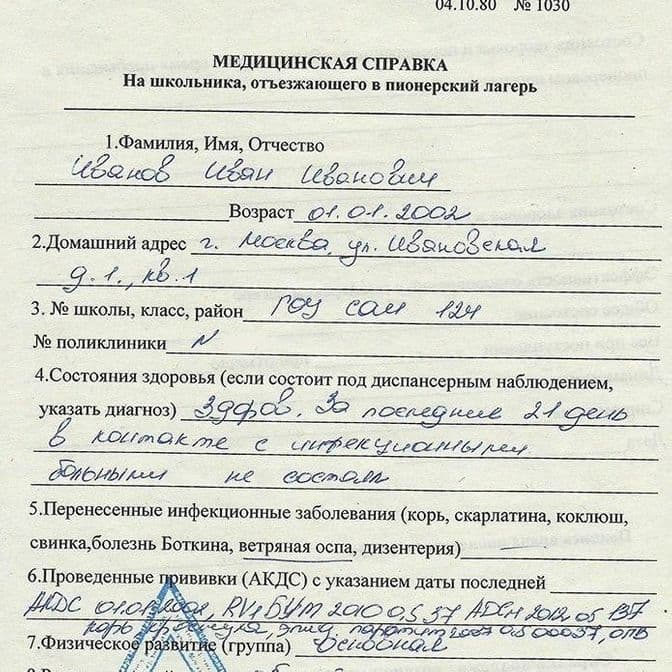 04.10.80 № 1030
МЕДИЦИНСКАЯ СПРАВКА
На школьника, отъезжающего в пионерский лагерь
1.Фамилия, Имя, Отчество
Иванов Иван Иванович
Возраст 01.01.2002
2.Домашний адрес г. Москва, ул. Ивановская
д.1., кв.1
3. № школы, класс, район ГОУ сош 124
№ поликлиники N
4.Состояния здоровья (если состоит под диспансерным наблюдением,
указать диагноз) Здоров. За последние 21 день
в контакте с инфекционными
больными не состоял
5.Перенесенные инфекционные заболевания (корь, скарлатина, коклюш,
свинка,болезнь Боткина, ветряная оспа, дизентерия)
6.Проведенные прививки (АКДС) с указанием даты последней
АКДС 01.01.2002, RV1 БУМ 2010 0,5 АДСМ 2012 05
корь краснуха, эпид. паротит 2007 0.5
7.Физическое развитие (группа) Основная